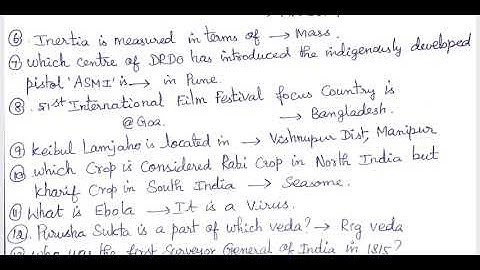 ⑥. Inertia is measured in terms of → Mass.
⑦ which centre of DRDO has introduced the indigenously developed
pistol 'ASMI' is → in Pune.
⑧. 51st International Film Festival focus Country is
@Goa. → Bangladesh.
⑨ Keibul Lamjaho is located in → Vishnupur Dist, Manipur
⑩ which Crop is Considered Rabi Crop in North India but
Kharif Crop in South India → Seasome.
⑪ What is Ebola → It is a Virus.
⑫. Purusha Sukta is a part of which veda? → Rig veda
was the first Surveyor General of India in 1815?